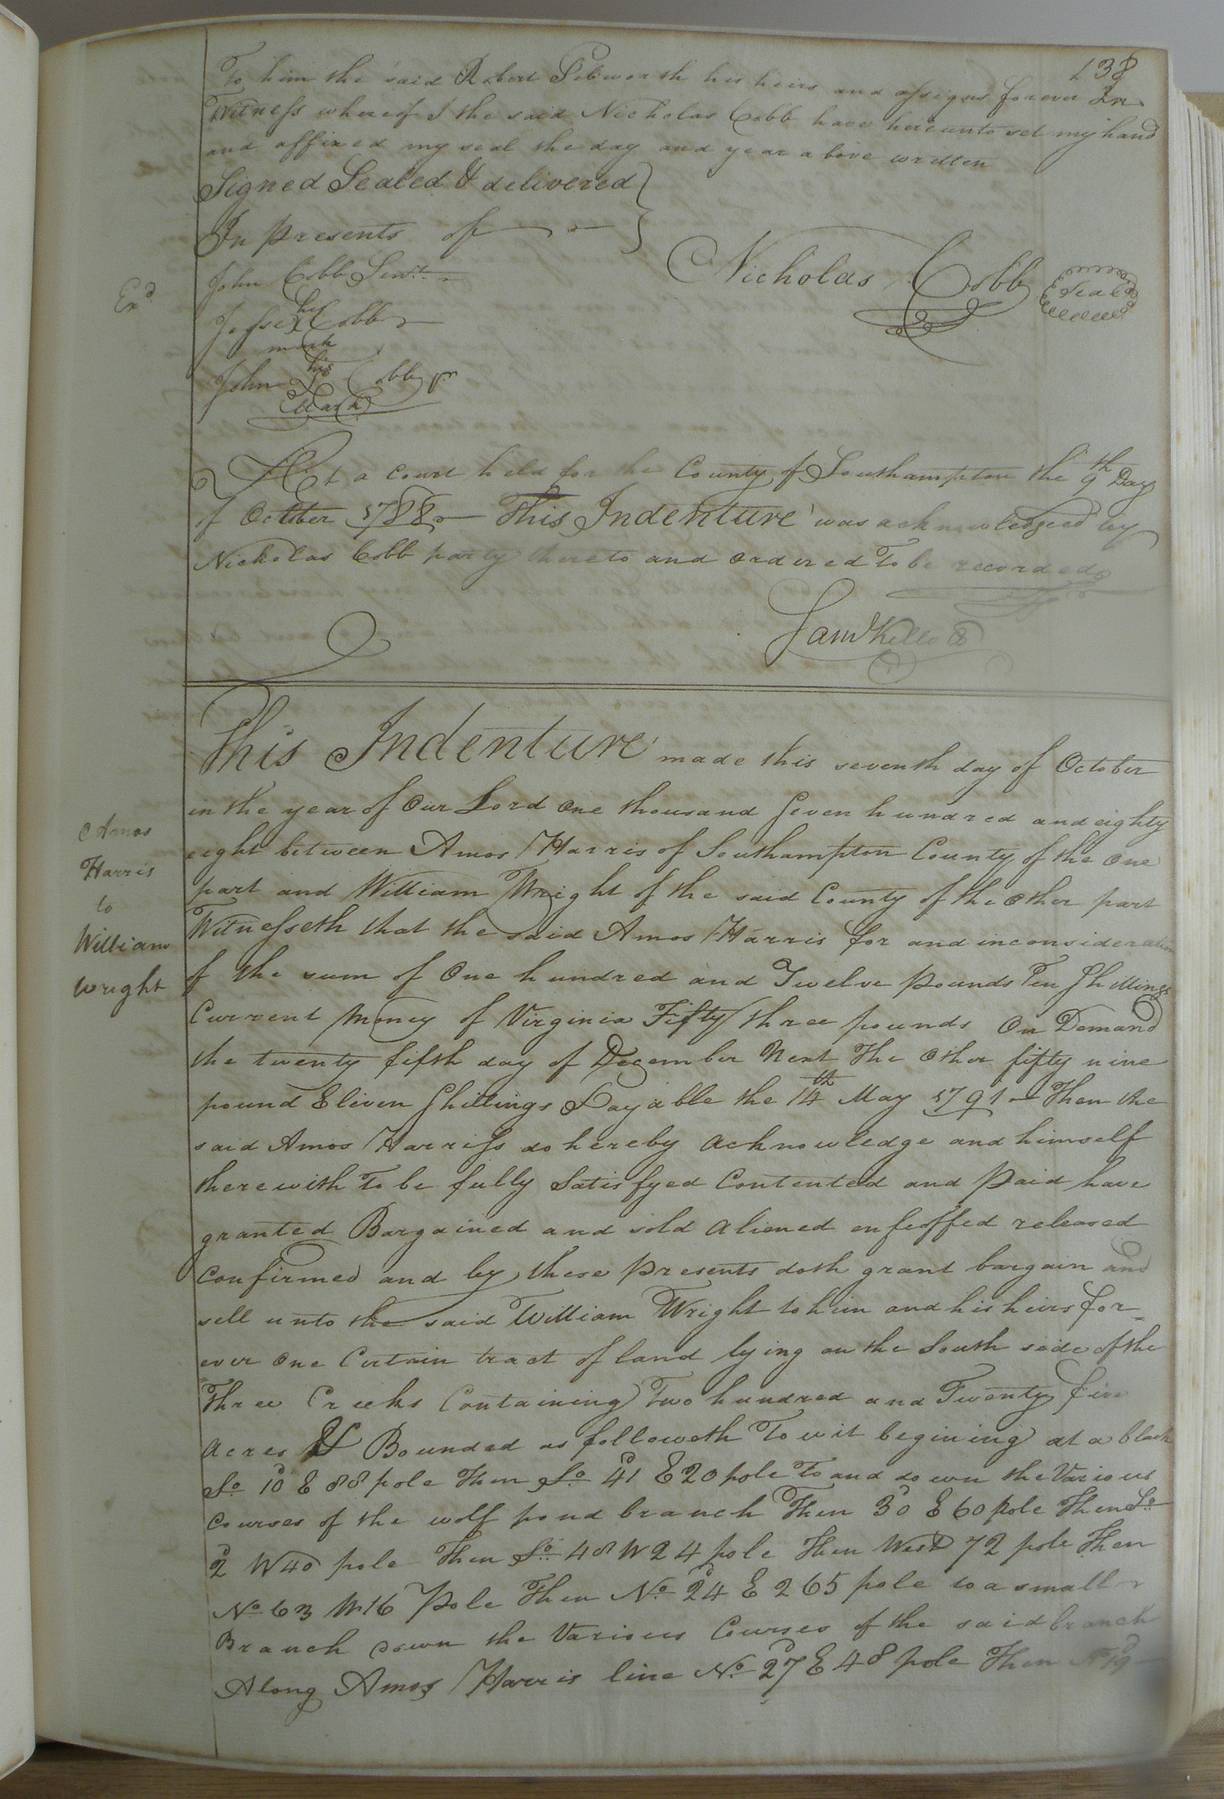 138
To him the said Robert Pebworth his heirs and assigns forever In
Witness whereof I the said Nicholas Cobb have hereunto set my hand
and affixed my seal the day and year above written
Signed Sealed & delivered
In presents of
Nicholas Cobb Seal
John Cobb Senr.
Ex'd
his
Jesse X Cobb
mark
his
John X Cobb Jr
Mark
At a Court held for the County of Southampton the 9th Day
of October 1788 This Indenture was acknowledged by
Nicholas Cobb party thereto and ordered To be recorded
Saml Kello
This Indenture made this seventh day of October
in the year of Our Lord One thousand Seven hundred and eighty
eight between Amos Harris of Southampton County of the One
part and William Wright of the said County of the other part
Amos
Harris
to
William
Wright
Witnesseth that the said Amos Harris for and in consideration
of the sum of One hundred and Twelve pounds Ten Shillings
Current Money of Virginia Fifty three pounds On Demand
the twenty fifth day of December Next The other fifty nine
pound Eleven Shillings Payable the 14th May 1791 Then the
said Amos Harriss do hereby acknowledge and himself
therewith To be fully Satisfyed Contented and Paid have
granted Bargained and sold aliened enfeoffed released
Confirmed and by these presents doth grant bargain and
sell unto the said William Wright to him and his heirs for
ever One Certain tract of land lying on the South side of the
Three Creeks Containing Two hundred and Twenty five
acres & Bounded as followeth To wit begining at a black
So. 10d E 88 pole Then So. 41d E 20 pole To and down the Various
Courses of the wolf pond branch Then 30d E 60 pole Then So.
2d W 40 pole Then So. 48 W 24 pole Then West 72 pole Then
No. 63 W 16 Pole Then No. 24d E 265 pole to a small
Branch down the Various Courses of the said branch
Along Amos Harris line No. 27d E 48 pole Then